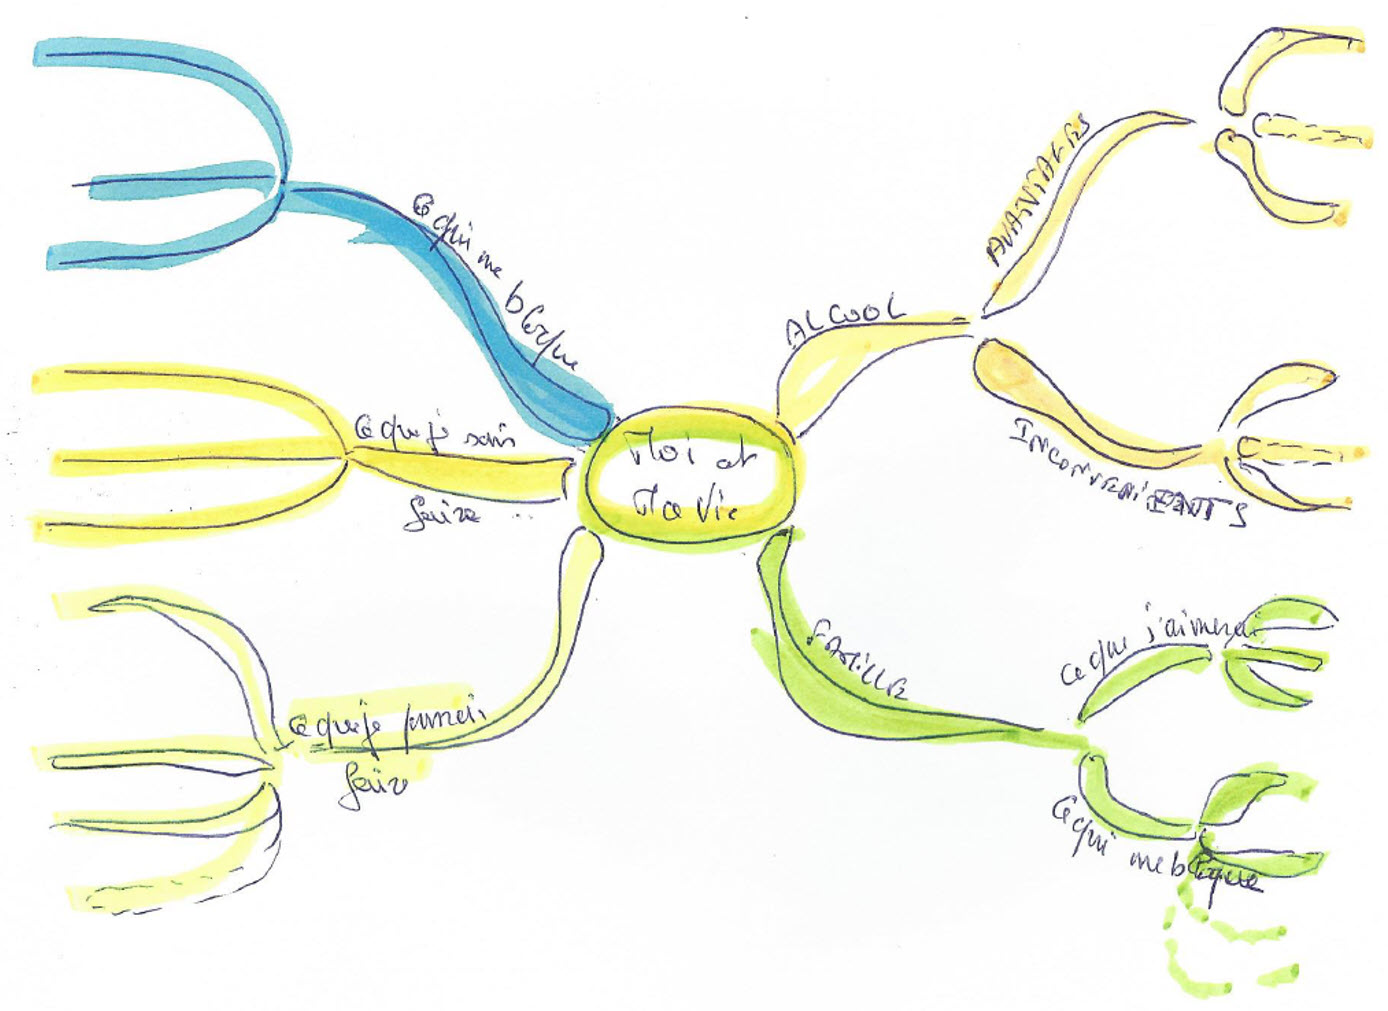 Moi et
Ma Vie
ALCOOL
AVANTAGES
INCONVENIENTS
FAMILLE
Ce que j'aimerai
Ce qui me bloque
Ce qui me bloque
Ce que je sais
faire ...
Ce que je
faire